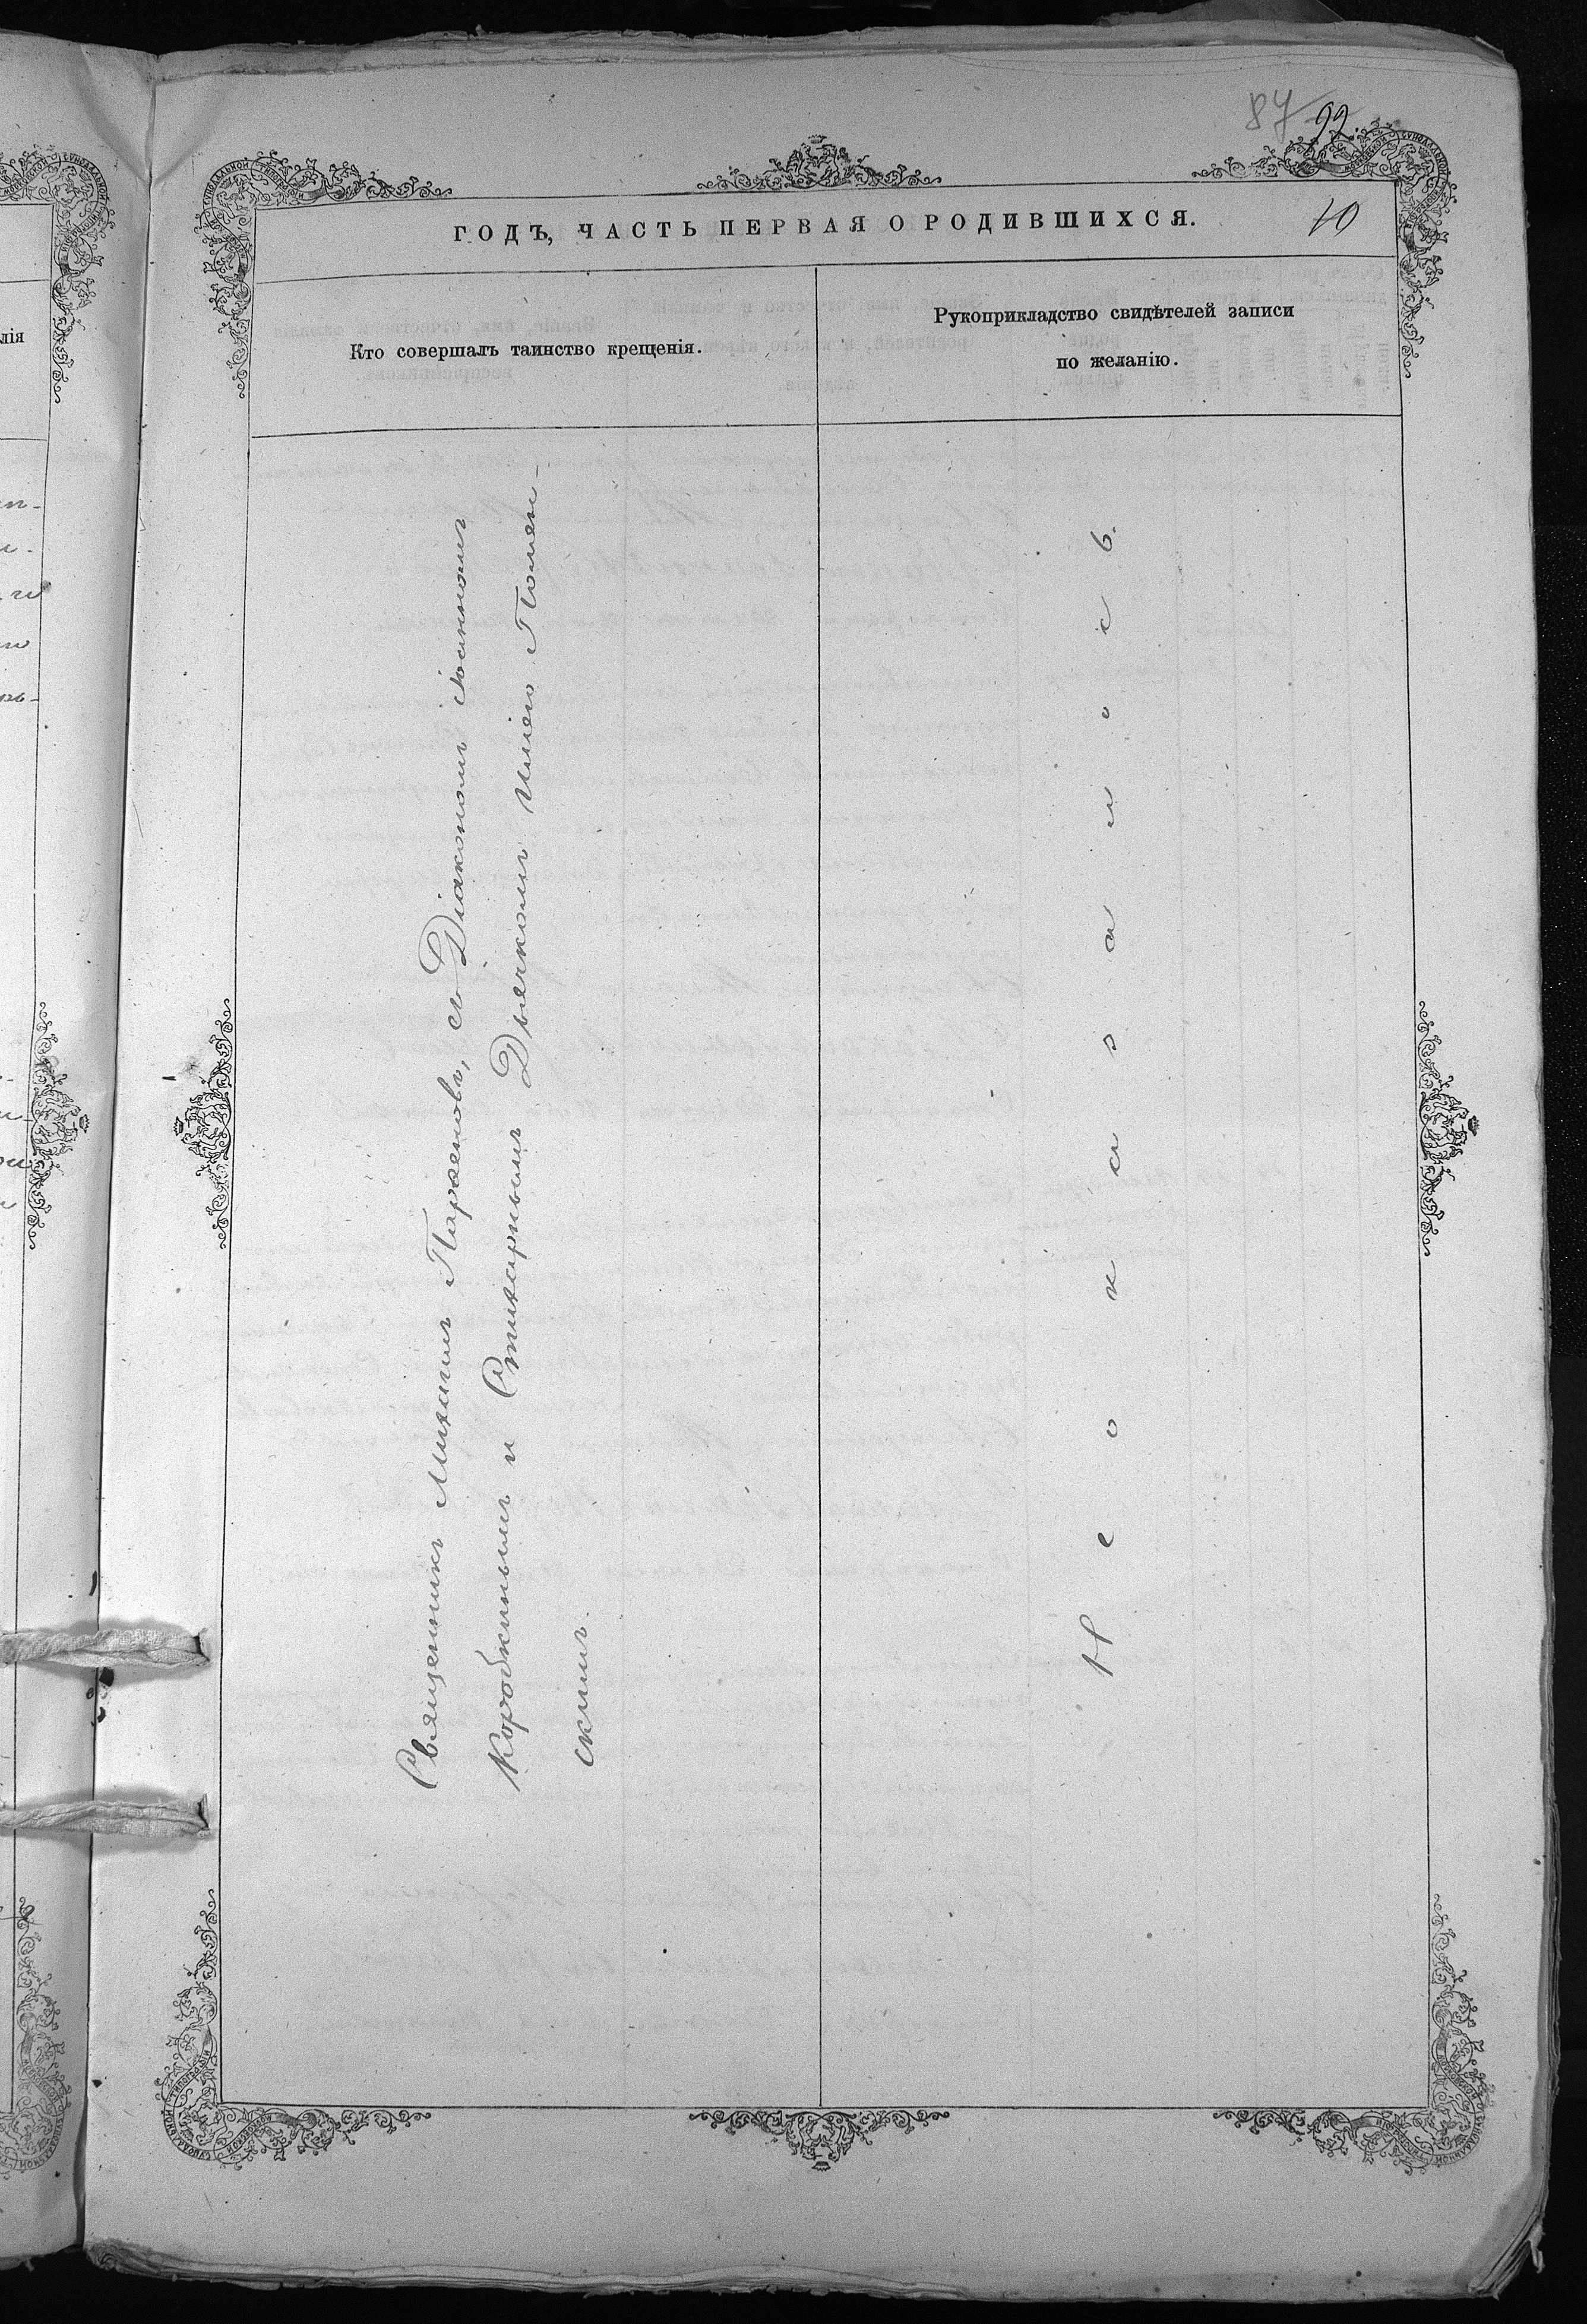 87
92.
10
ГОДЪ, ЧАСТЬ ПЕРВАЯ О РОДИВШИХСЯ.
Кто совершалъ таинство крещенія.
Рукоприкладство свидѣтелей записи
по желанію.
Священникъ Михаилъ Парѳеновъ, съ Діакономъ Іоанномъ
Коробкинымъ и Стихарнымъ Дьячкомъ Иліею Помян-
скимъ.
Не оказалось.
лія